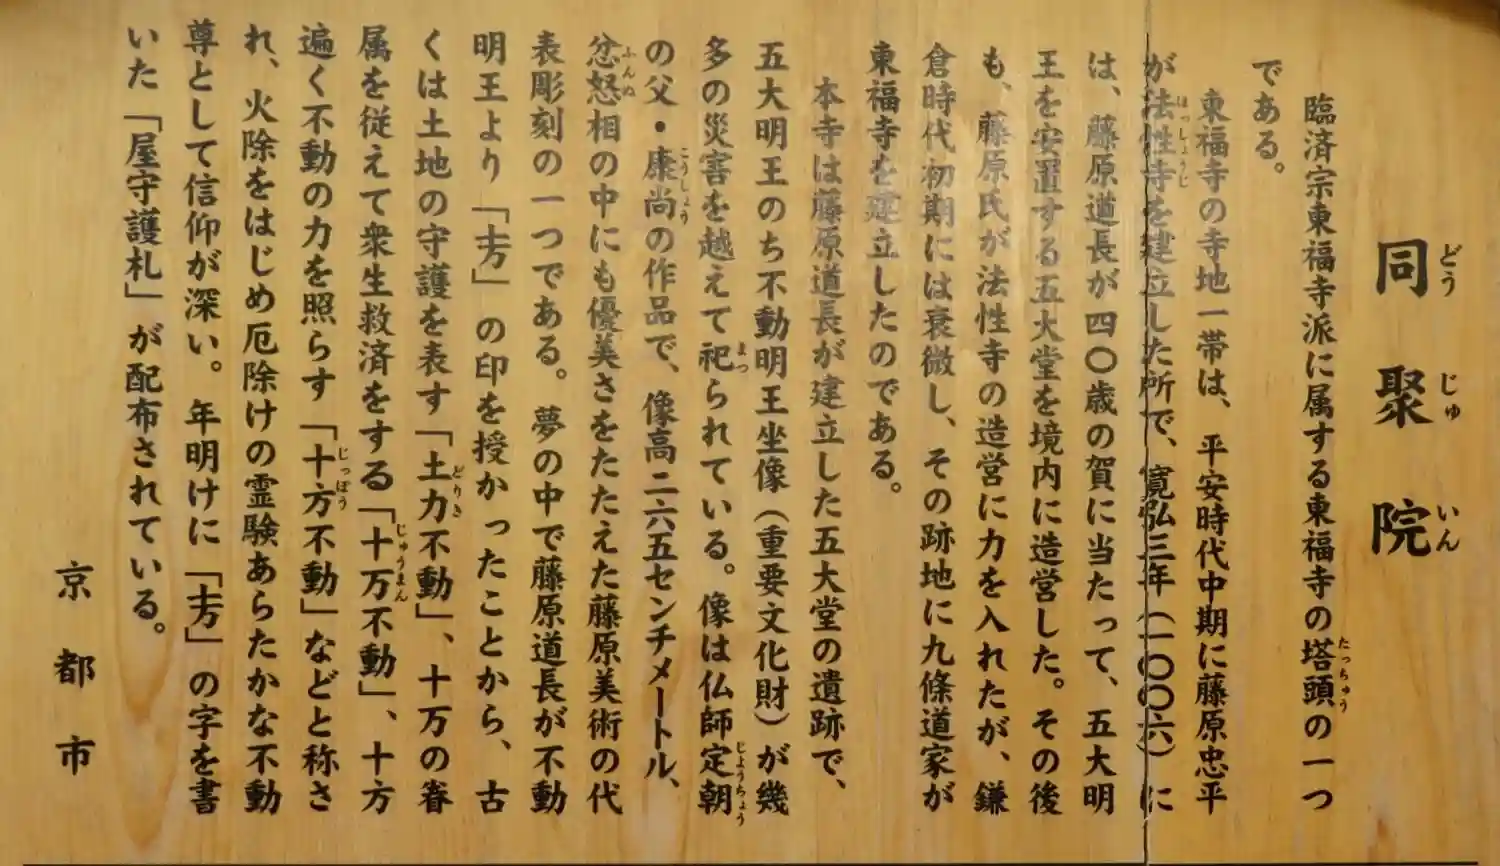 同聚院
どうじゅいん
臨済宗東福寺派に属する東福寺の塔頭の一つ
たっちゅう
である。
東福寺の寺地一帯は、平安時代中期に藤原忠平
が法性寺を建立した所で、寛弘三年(一〇〇六)に
ほっしょうじ
は、藤原道長が四〇歳の賀に当たって、五大明
王を安置する五大堂を境内に造営した。その後
も、藤原氏が法性寺の造営に力を入れたが、鎌
倉時代初期には衰微し、その跡地に九條道家が
東福寺を建立したのである。
本寺は藤原道長が建立した五大堂の遺跡で、
五大明王のち不動明王坐像(重要文化財)が幾
多の災害を越えて祀られている。像は仏師定朝
まつ
じょうちょう
の父・康尚の作品で、像高二六五センチメートル、
こうしょう
忿怒相の中にも優美さをたたえた藤原美術の代
ふんぬ
表彫刻の一つである。夢の中で藤原道長が不動
明王より「」の印を授かったことから、古
くは土地の守護を表す「土力不動」、十万の眷
どりき
属を従えて衆生救済をする「十万不動」、十方
じゅうまん
遍く不動の力を照らす「十方不動」などと称さ
じっぽう
れ、火除をはじめ厄除けの霊験あらたかな不動
尊として信仰が深い。年明けに「」の字を書
いた「屋守護札」が配布されている。
京都市